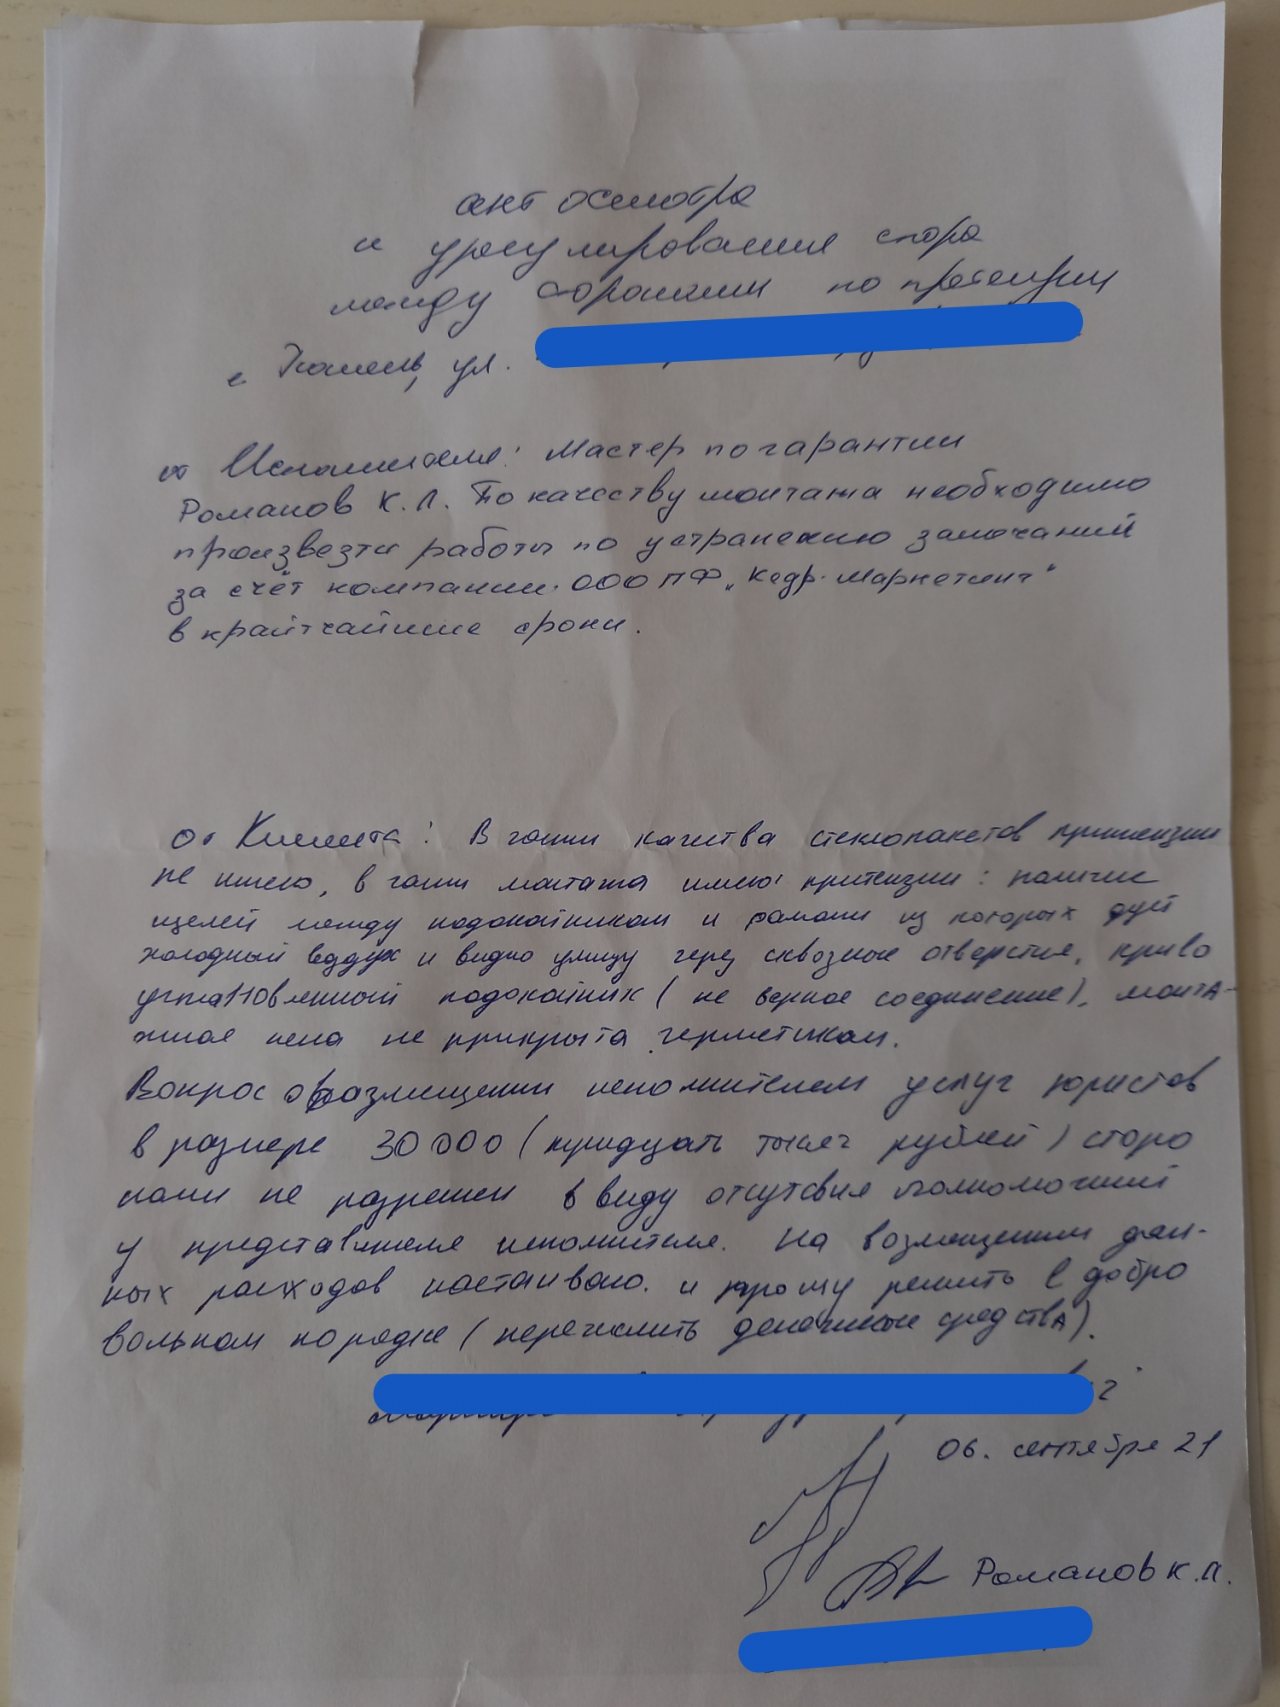 акт осмотра
и урегулирования спора
между сторонами по претензии
г. Тюмень, ул.
от Исполнителя: Мастер по гарантии
Романов К.Л. По качеству монтажа необходимо
произвезти работы по устранению замечаний
за счёт компании ООО ПФ "Кедр-Маркетинг"
в крайтчайшие сроки.
От Клиента: В части качества стеклопакетов притензии
не имею, в части монтажа имею притензии: наличие
щелей между подоконником и рамами из которых дует
холодный воздух и видно улицу через сквозные отверстия, криво
установленный подоконник (не верное соединение), монта-
жная пена не прикрыта герметиком.
Вопрос о возмещении исполнителем услуг юристов
в размере 30 000 (тридцать тысяч рублей) сторо
нами не разрешен в виду отсутсвия полномочий
у представителя исполнителя. На возмещении дан-
ных расходов настаиваю. и прошу решить в добро
вольном порядке (перечислить денежные средства).
06. сентября 21
Романов К.Л.